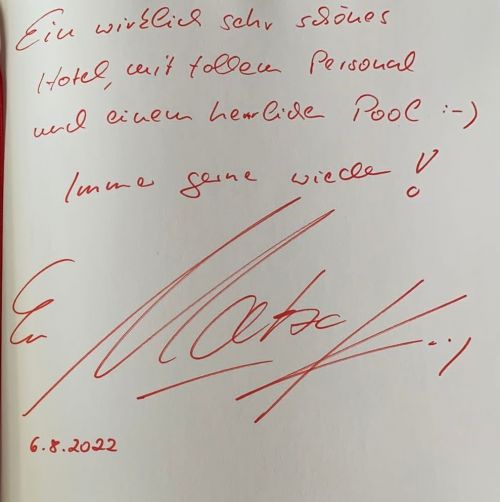 Ein wirklich sehr schönes
Hotel, mit tollem Personal
und einem herrlichen Pool :-)
Immer gerne wieder!
6.8.2022